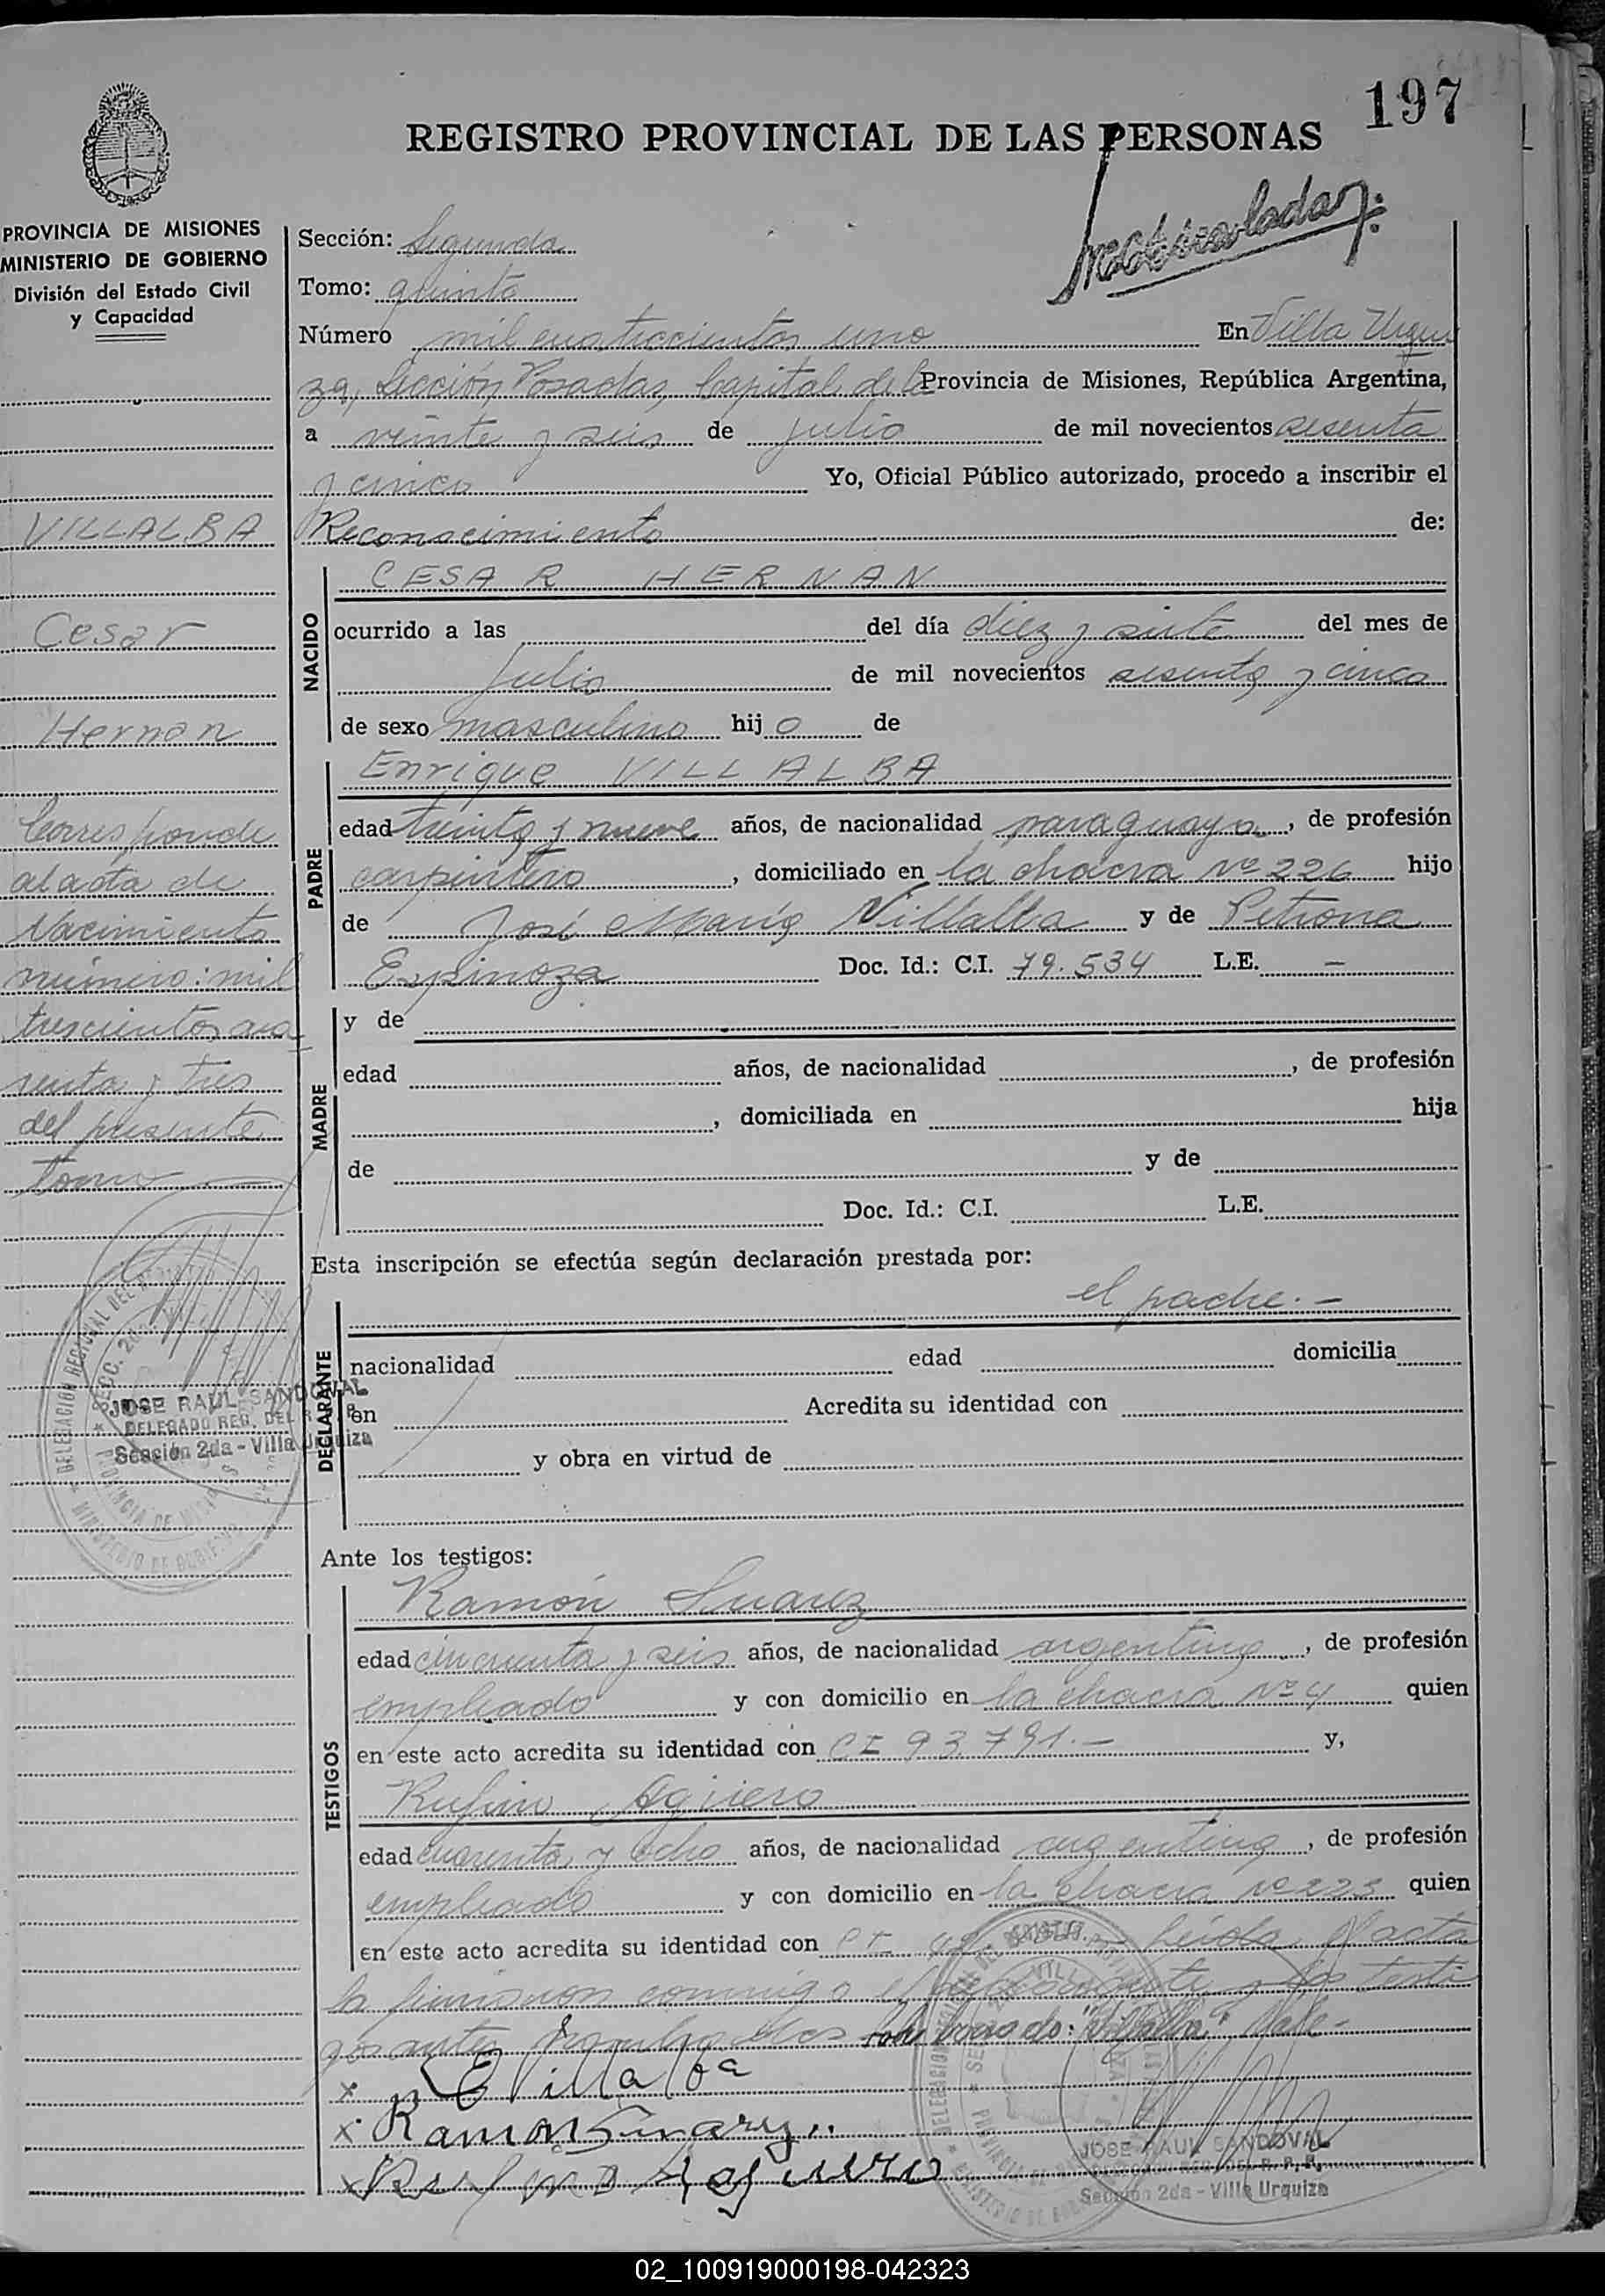 197
REGISTRO PROVINCIAL DE LAS PERSONAS
PROVINCIA DE MISIONES
MINISTERIO DE GOBIERNO
División del Estado Civil
y Capacidad
VILLALBA
Cesar
Hernan
Corresponde
al acta de
Nacimiento
número: mil
trescientos cua
renta y tres
del presente
tomo
JOSE RAUL SANDOVAL
DELEGADO REG. DEL R. P. P.
Sección 2da - Villa Urquiza
Sección: Segunda
Tomo: quinto
Número mil cuatrocientos uno En Villa Urqui
za, Sección Posadas, Capital de la Provincia de Misiones, República Argentina,
a veinte y seis de julio de mil novecientos sesenta
y cinco Yo, Oficial Público autorizado, procedo a inscribir el
Reconocimiento de:
NACIDO
CESAR HERNAN
ocurrido a las del día diez y siete del mes de
Julio de mil novecientos sesenta y cinco
de sexo masculino hijo de
PADRE
Enrique VILLALBA
edad treinta y nueve años, de nacionalidad paraguaya, de profesión
carpintero, domiciliado en la chacra Nº 226 hijo
de José María Villalba y de Petrona
Espinoza Doc. Id.: C.I. 79.534 L.E. —
MADRE
y de
edad años, de nacionalidad , de profesión
, domiciliada en hija
de y de
Doc. Id.: C.I. L.E.
Esta inscripción se efectúa según declaración prestada por:
el padre.—
DECLARANTE
nacionalidad edad domicilia
en Acredita su identidad con
y obra en virtud de
Ante los testigos:
TESTIGOS
Ramón Suarez
edad cincuenta y seis años, de nacionalidad argentina, de profesión
empleado y con domicilio en la chacra Nº 4 quien
en este acto acredita su identidad con CI 93.791.— y,
Rufino Agüero
edad cuarenta y ocho años, de nacionalidad argentina, de profesión
empleado y con domicilio en la chacra Nº 223 quien
en este acto acredita su identidad con CI Leida el acta
la firmaron conmigo el y los testi
gos antes
E Villalba
Ramon Suarez
Rufino Aguero
JOSE RAUL SANDOVAL
DELEGADO REG. DEL R. P. P.
Sección 2da - Villa Urquiza
02_100919000198-042323